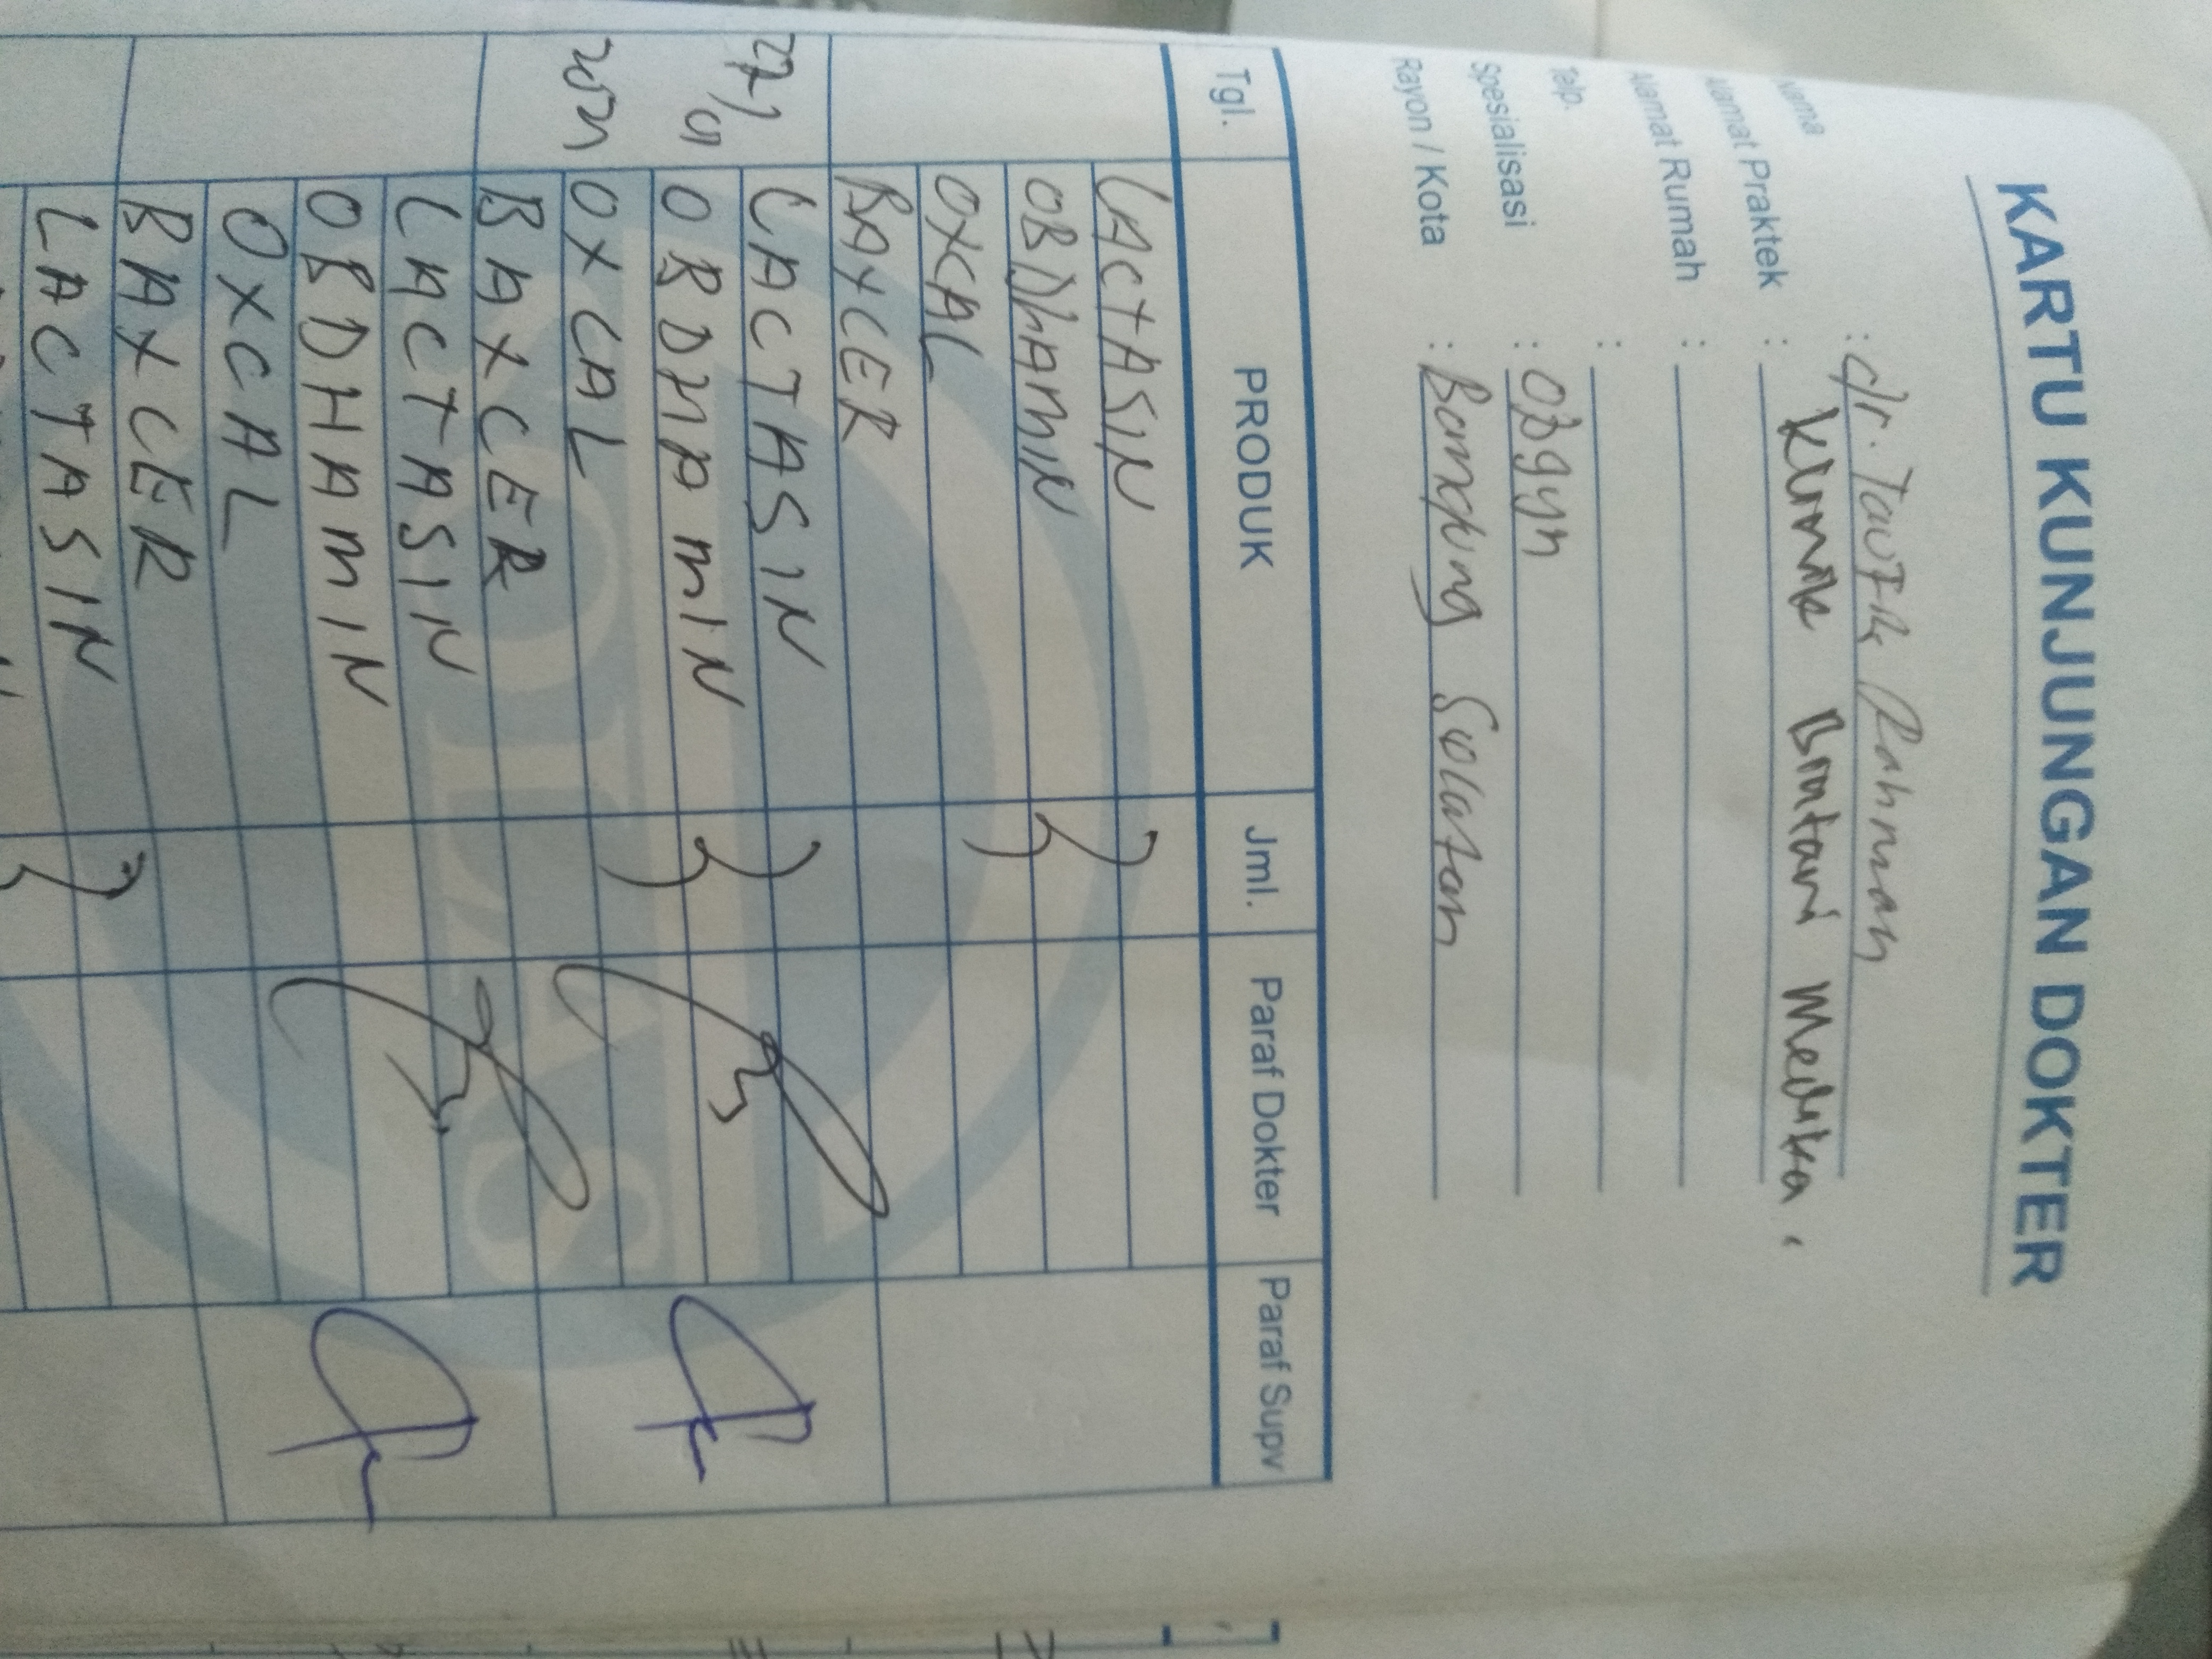 KARTU KUNJUNGAN DOKTER
Nama : dr. Taufik Rahman
Alamat Praktek : Klinik Bratani Medika.
Alamat Rumah :
Telp. :
Spesialisasi : OBgyn
Rayon / Kota : Bandung Selatan
Tgl. PRODUK Jml. Paraf Dokter Paraf Supv
LACTASIN
OBDHAMIN
OXCAL
BAXCER
27/01 LACTASIN
OBDHAMIN
2021 OXCAL
BAXCER
LACTASIN
OBDHAMIN
OXCAL
BAXCER
LACTASIN